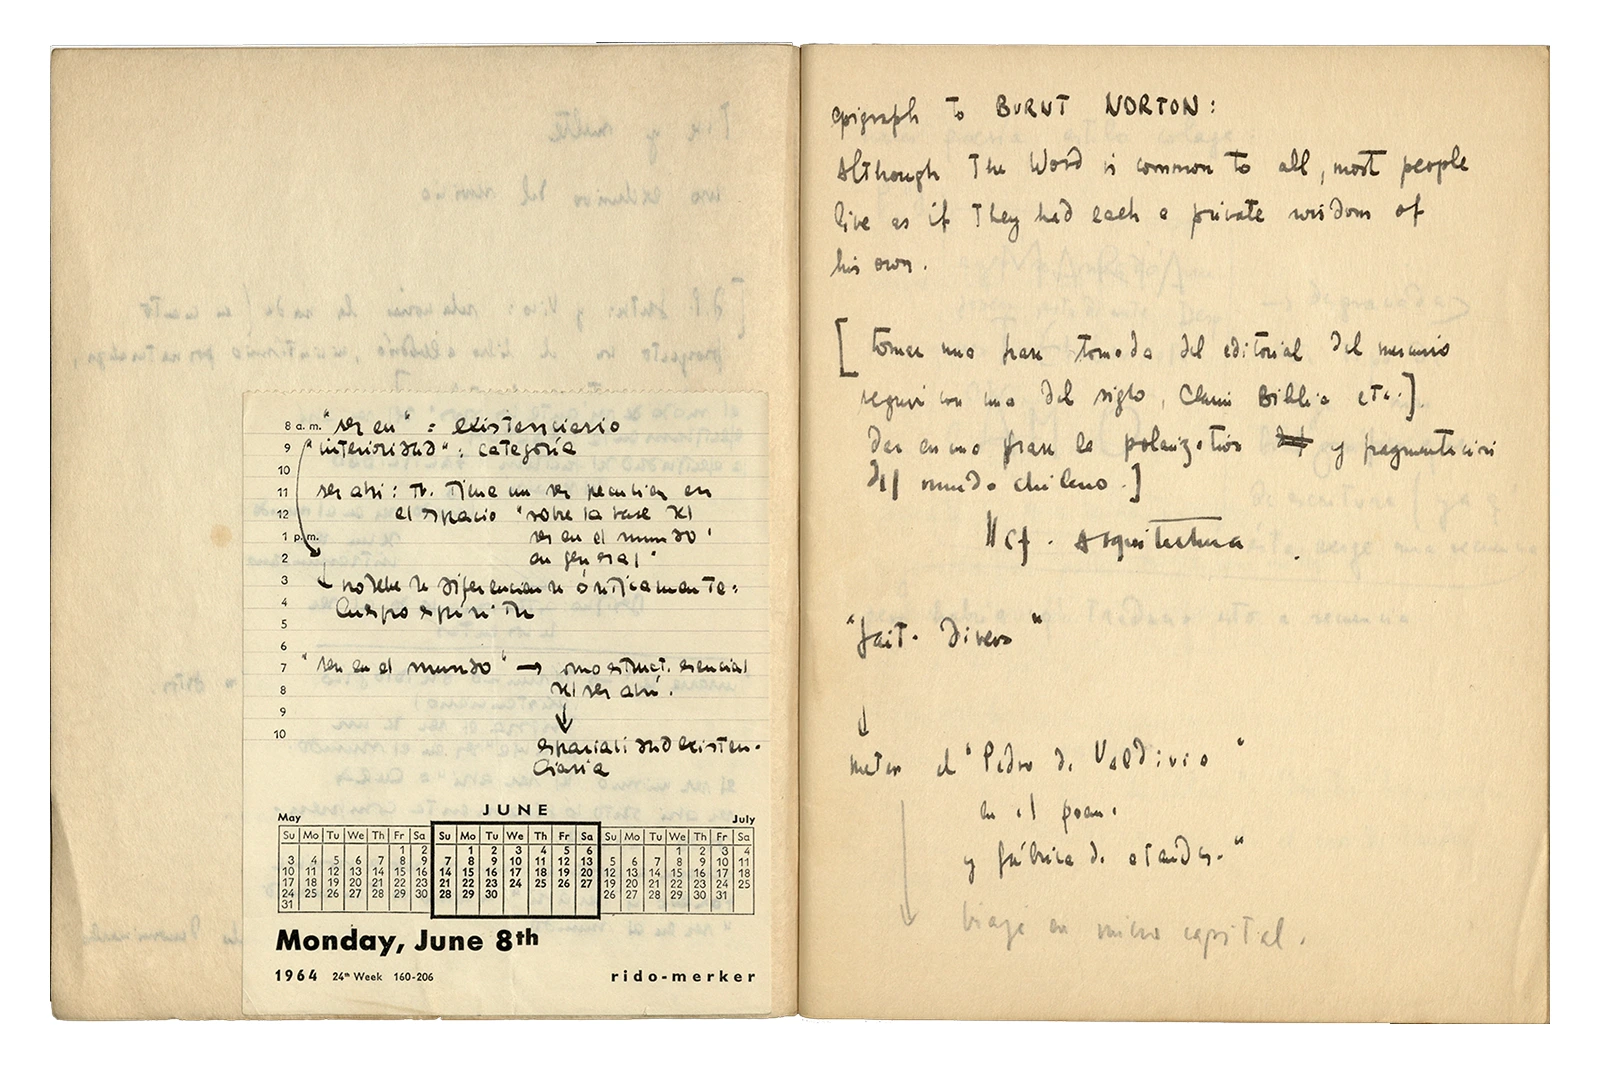 8 a.m. "ser en" : existenciario
9 "interioridad" : categoría
10
11 ser ahí : tb. tiene un ser peculiar en
12 el espacio "sobre la base del
1 p.m. ser en el mundo
2 en general"
3 no debe diferenciarse ónticamente:
4 Cuerpo espíritu
5
6
7 "ser en el mundo" → estruct. esencial
8 del ser ahí.
9 ↓
10 espacialidad existen-
ciaria
JUNE
May July
Su Mo Tu We Th Fr Sa Su Mo Tu We Th Fr Sa Su Mo Tu We Th Fr Sa
1 2 1 2 3 4 5 6 1 2 3 4
3 4 5 6 7 8 9 7 8 9 10 11 12 13 5 6 7 8 9 10 11
10 11 12 13 14 15 16 14 15 16 17 18 19 20 12 13 14 15 16 17 18
17 18 19 20 21 22 23 21 22 23 24 25 26 27 19 20 21 22 23 24 25
24 25 26 27 28 29 30 28 29 30 26 27 28 29 30 31
31
Monday, June 8th
1964 24th Week 160-206 rido-merker
epigraph to BURNT NORTON:
Although the Word is common to all, most people
live as if they had each a private wisdom of
his own.
[ tomar una frase tomada del editorial del mercurio
seguir con una del siglo, Clarin Biblia etc.]
Dar en una frase la polarización y fragmentación
del mundo chileno.]
cf. Arquitectura
"fait-divers"
↓
meter el "Pedro de Valdivia"
en el poema
y fábrica de
viaje en micro capital.